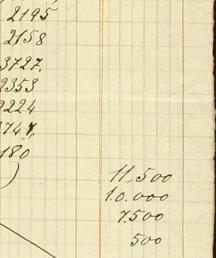 2195
2158
3727.
2353
2224
747.
180
11.500
10.000
7.500
500